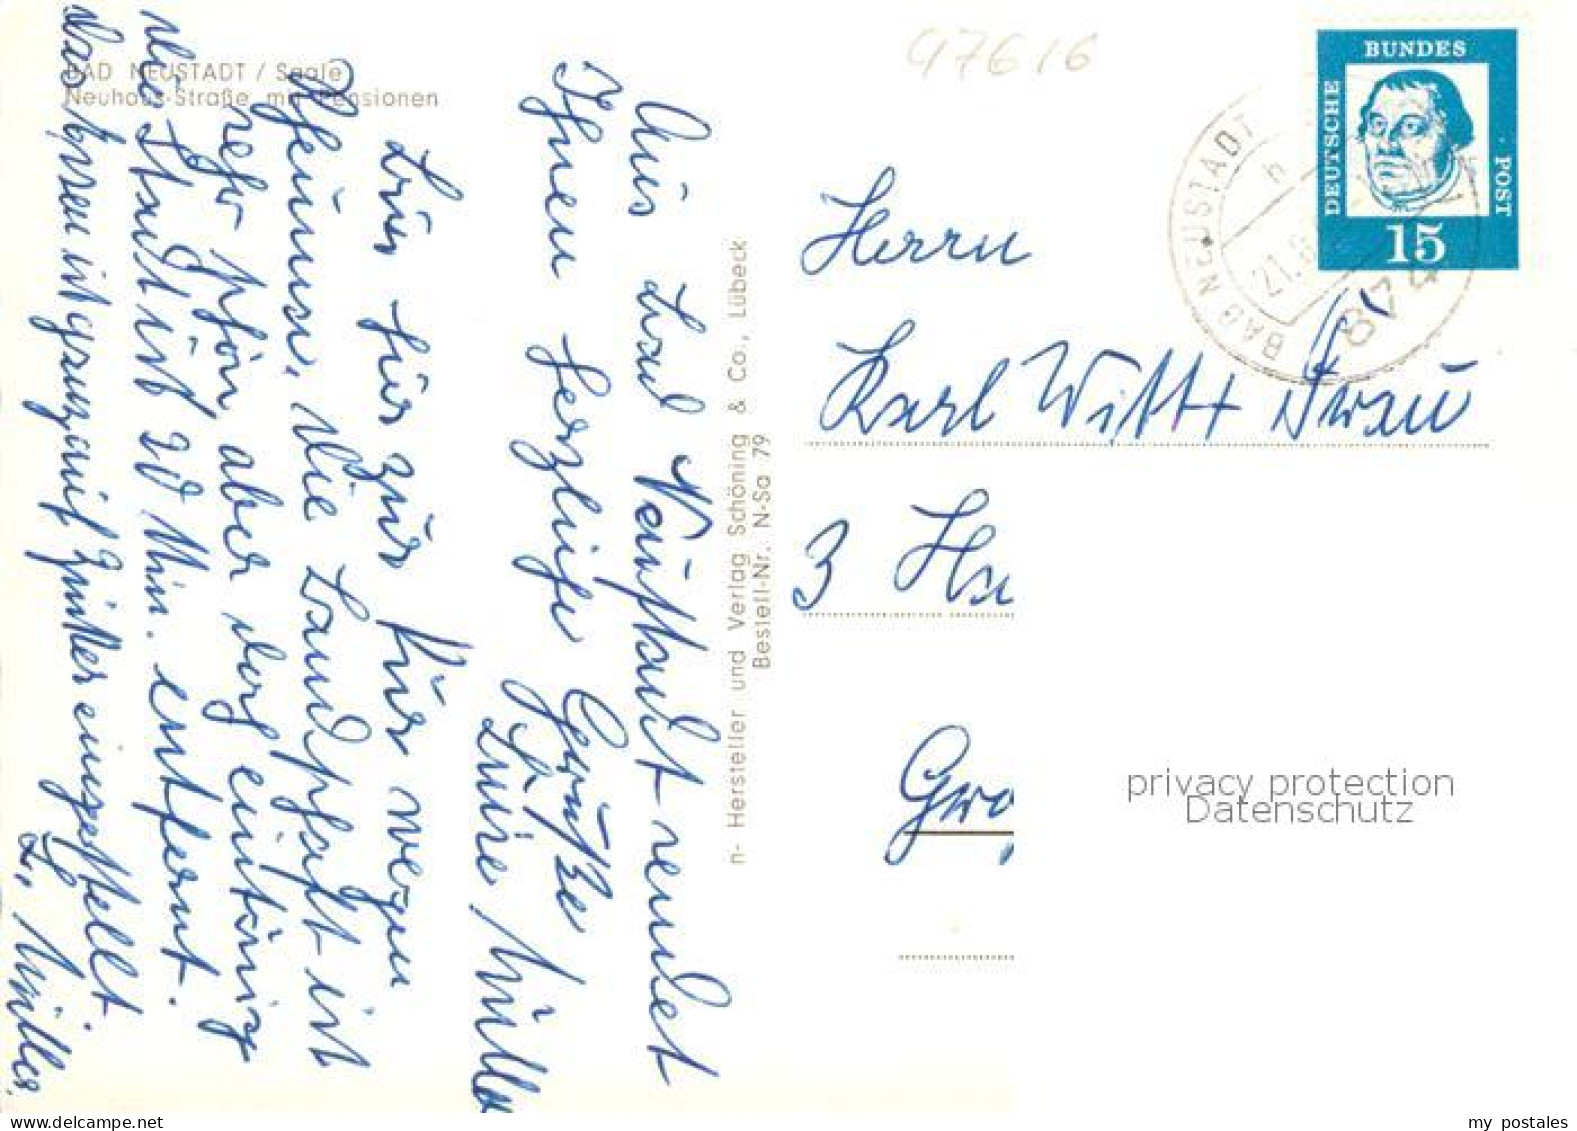 BAD NEUSTADT / Saale
Neuhaus-Straße mit Pensionen
97616
Aus Bad Neustadt sendet
Ihnen herzliche Grüße
Luise Müller
bin hier zur Kur wegen
Rheuma, die Landschaft ist
sehr schön aber doch einsam
die Stadt ist 20 Min. entfernt.
das Essen ist ganz auf Zucker eingestellt.
L. Müller.
n- Hersteller und Verlag Schöning & Co., Lübeck
Bestell-Nr. N-Sa 79
DEUTSCHE BUNDES POST
15
BAD NEUSTADT
21.8
874
Herrn
Karl Witt + Frau
3 Ha
Gro
privacy protection
Datenschutz
my postales